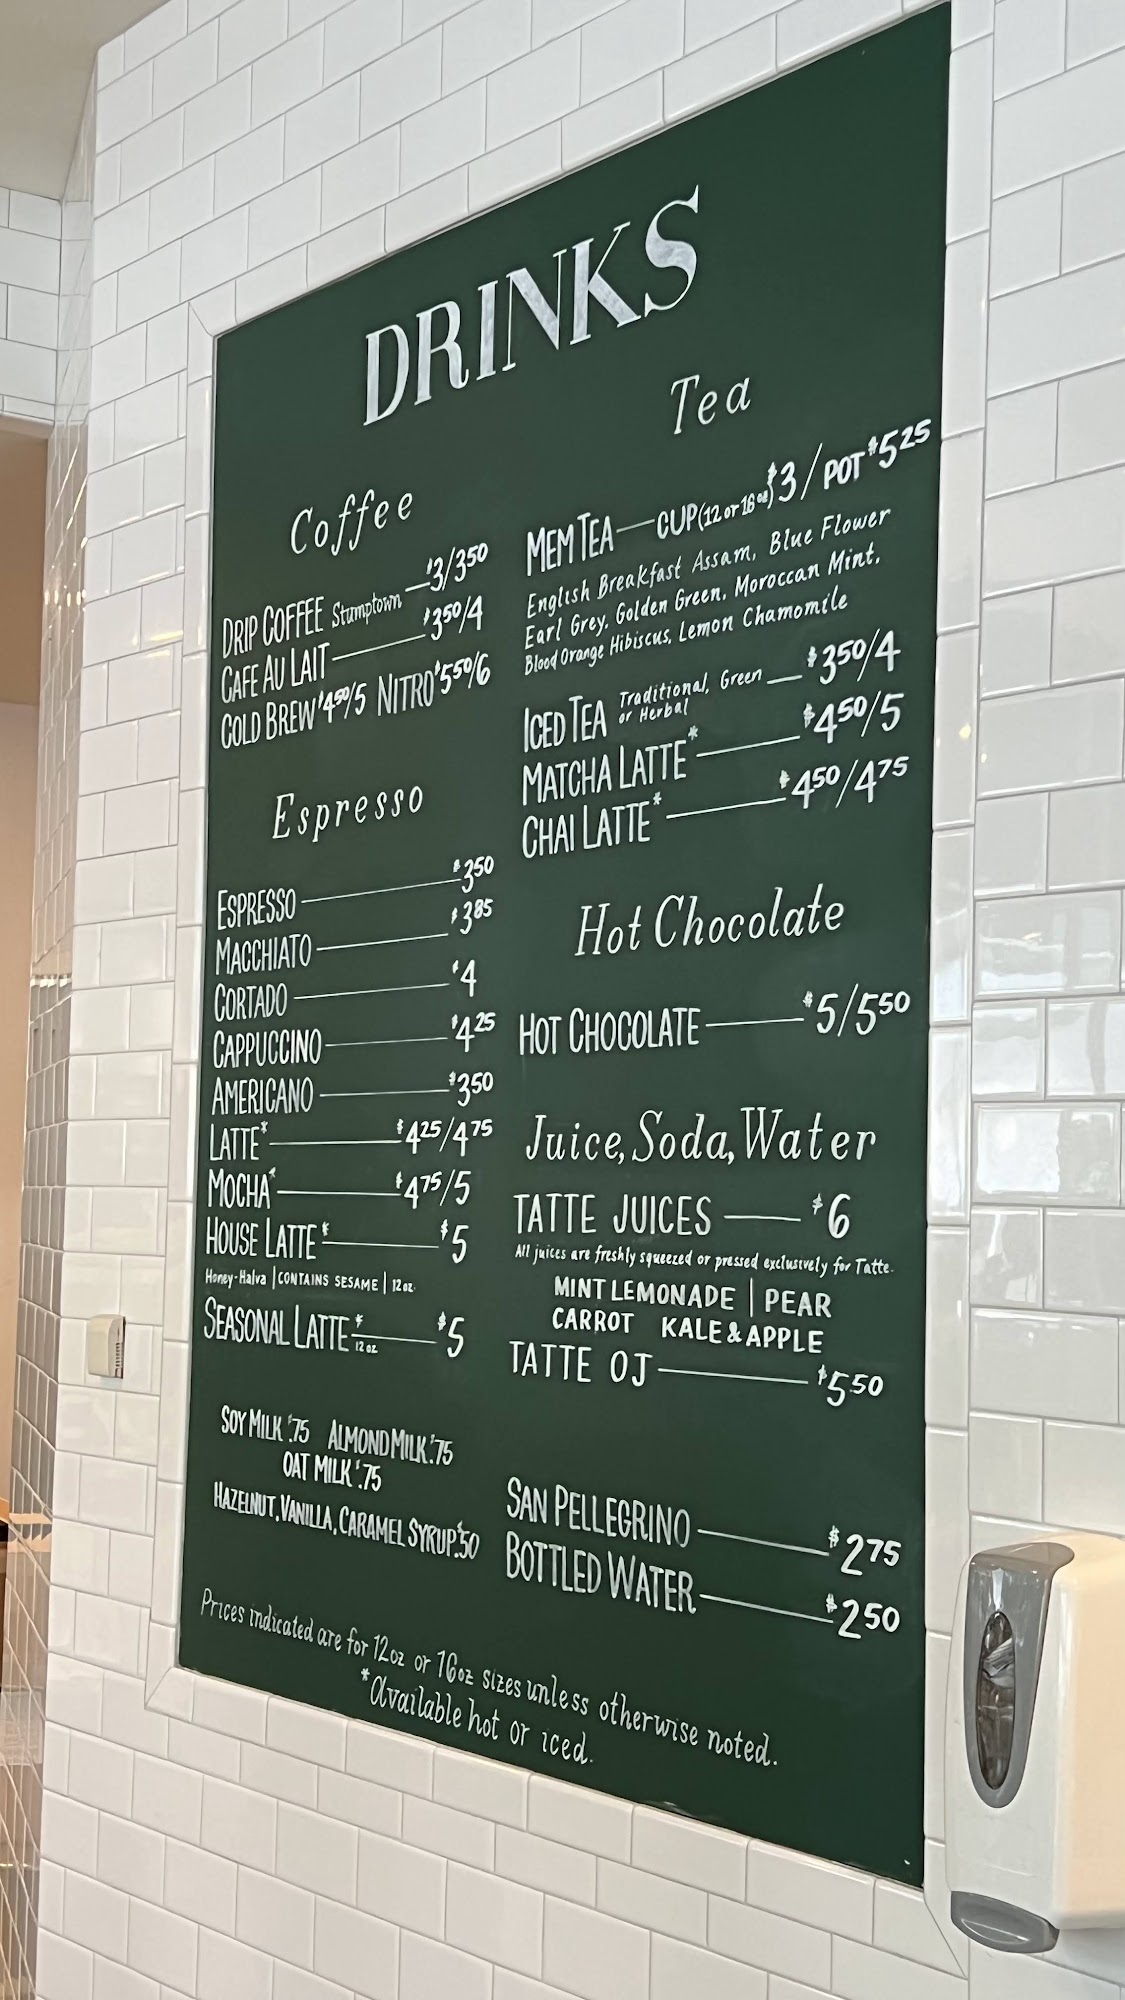 DRINKS
Coffee
DRIP COFFEE Stumptown $3/350
CAFE AU LAIT $350/4
COLD BREW $450/5 NITRO $550/6
Espresso
ESPRESSO $350
MACCHIATO $385
CORTADO $4
CAPPUCCINO $425
AMERICANO $350
LATTE* $425/475
MOCHA* $475/5
HOUSE LATTE* $5
Honey-Halva | CONTAINS SESAME | 12oz.
SEASONAL LATTE* 12 oz $5
SOY MILK $.75 ALMOND MILK $.75
OAT MILK $.75
HAZELNUT, VANILLA, CARAMEL SYRUP $.50
Tea
MEM TEA CUP (12 or 16 oz) $3/POT $525
English Breakfast Assam, Blue Flower
Earl Grey, Golden Green, Moroccan Mint,
Blood Orange Hibiscus, Lemon Chamomile
ICED TEA Traditional, Green or Herbal $350/4
MATCHA LATTE* $450/5
CHAI LATTE* $450/475
Hot Chocolate
HOT CHOCOLATE $5/550
Juice, Soda, Water
TATTE JUICES $6
All juices are freshly squeezed or pressed exclusively for Tatte.
MINT LEMONADE | PEAR
CARROT KALE & APPLE
TATTE OJ $550
SAN PELLEGRINO $275
BOTTLED WATER $250
Prices indicated are for 12oz or 16oz sizes unless otherwise noted.
*Available hot or iced.